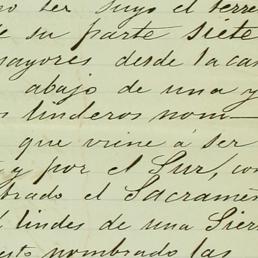 no ser suyo el terre
e su parte siete
mayores desde la ca
abajo de una y
s linderos nom—
que viene á ser
y por el Sur, con
brado el Sacrame
l lindes de una Sier
esto nombrado las